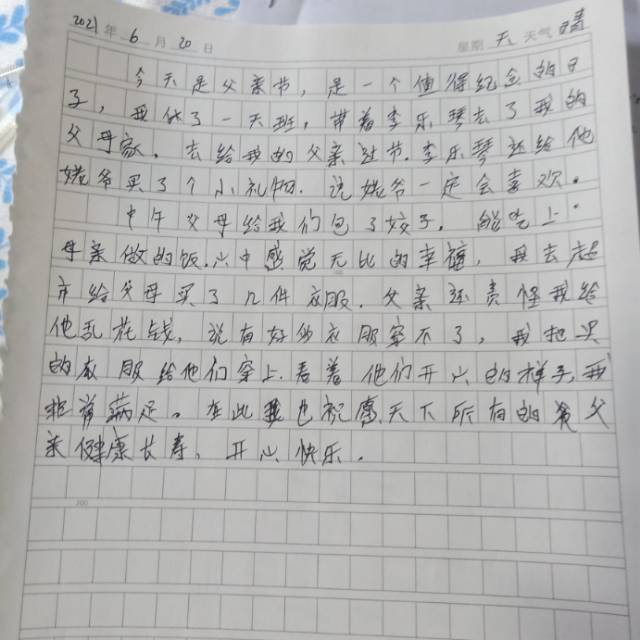 2021年 6月 20日 星期 天 天气 晴
今天是父亲节，是一个值得纪念的日
子，我休了一天班，带着李乐琴去了我的
父母家。去给我的父亲过节。李乐琴还给他
姥爷买了个小礼物。说姥爷一定会喜欢。
中午父母给我们包了饺子。能吃上
母亲做的饭，心中感觉无比的幸福，我去超
市给父母买了几件衣服。父亲还责怪我给
他乱花钱，说有好多衣服穿不了，我把买
的衣服给他们穿上，看着他们开心的样子，我
非常满足。在此我也祝愿天下所有的父
亲健康长寿，开心快乐。
200